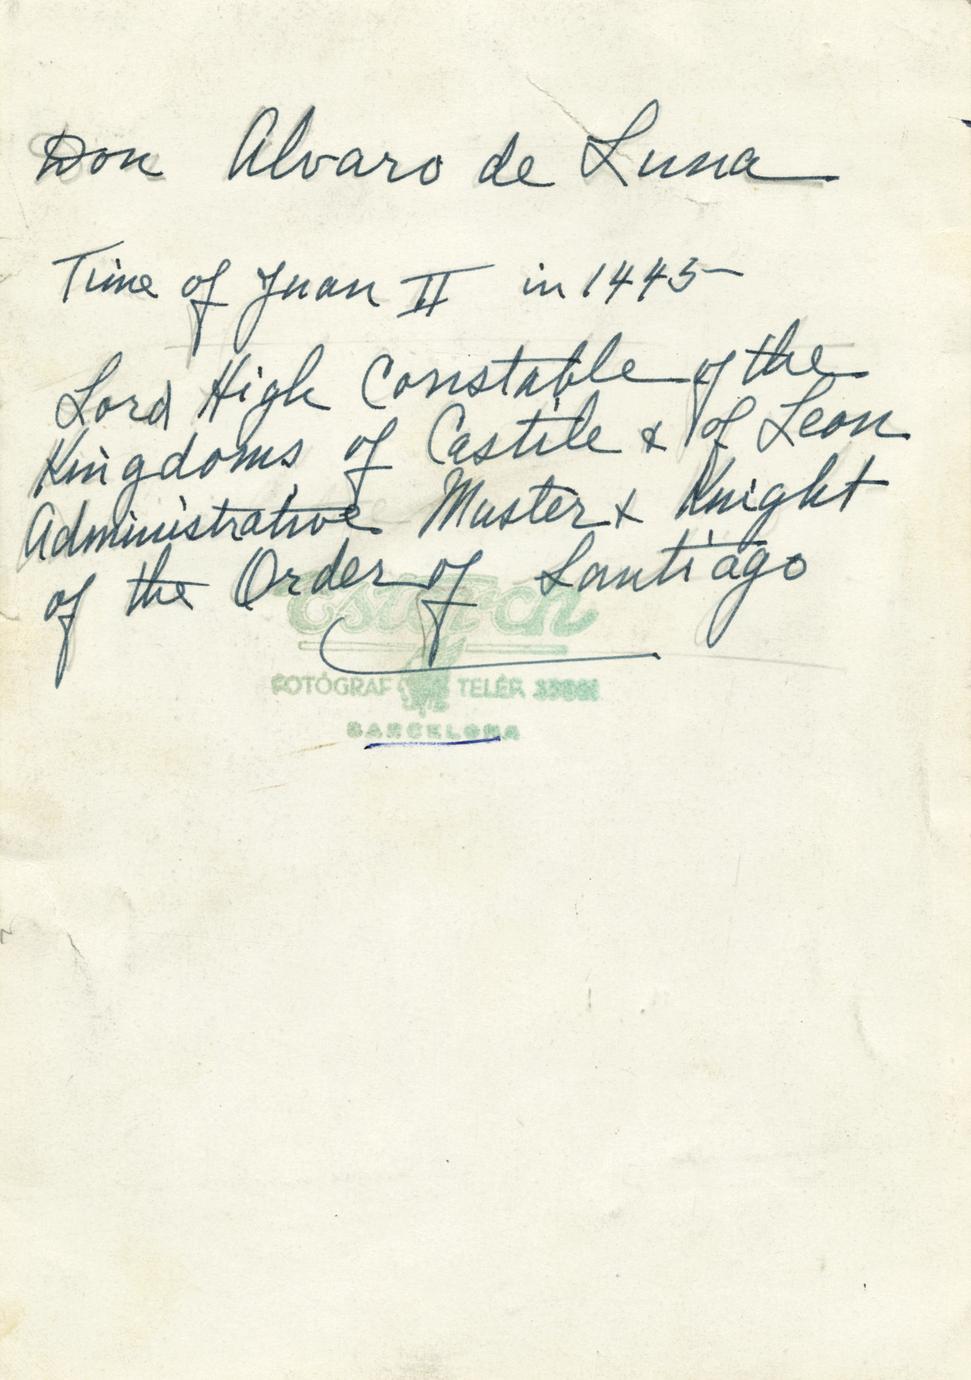 Don Alvaro de Luna
Time of Juan II in 1445
Lord High Constable of the
Kingdoms of Castile & of Leon
Administrative Master & Knight
of the Order of Santiago
FOTÓGRAF TELÉF.
BARCELONA